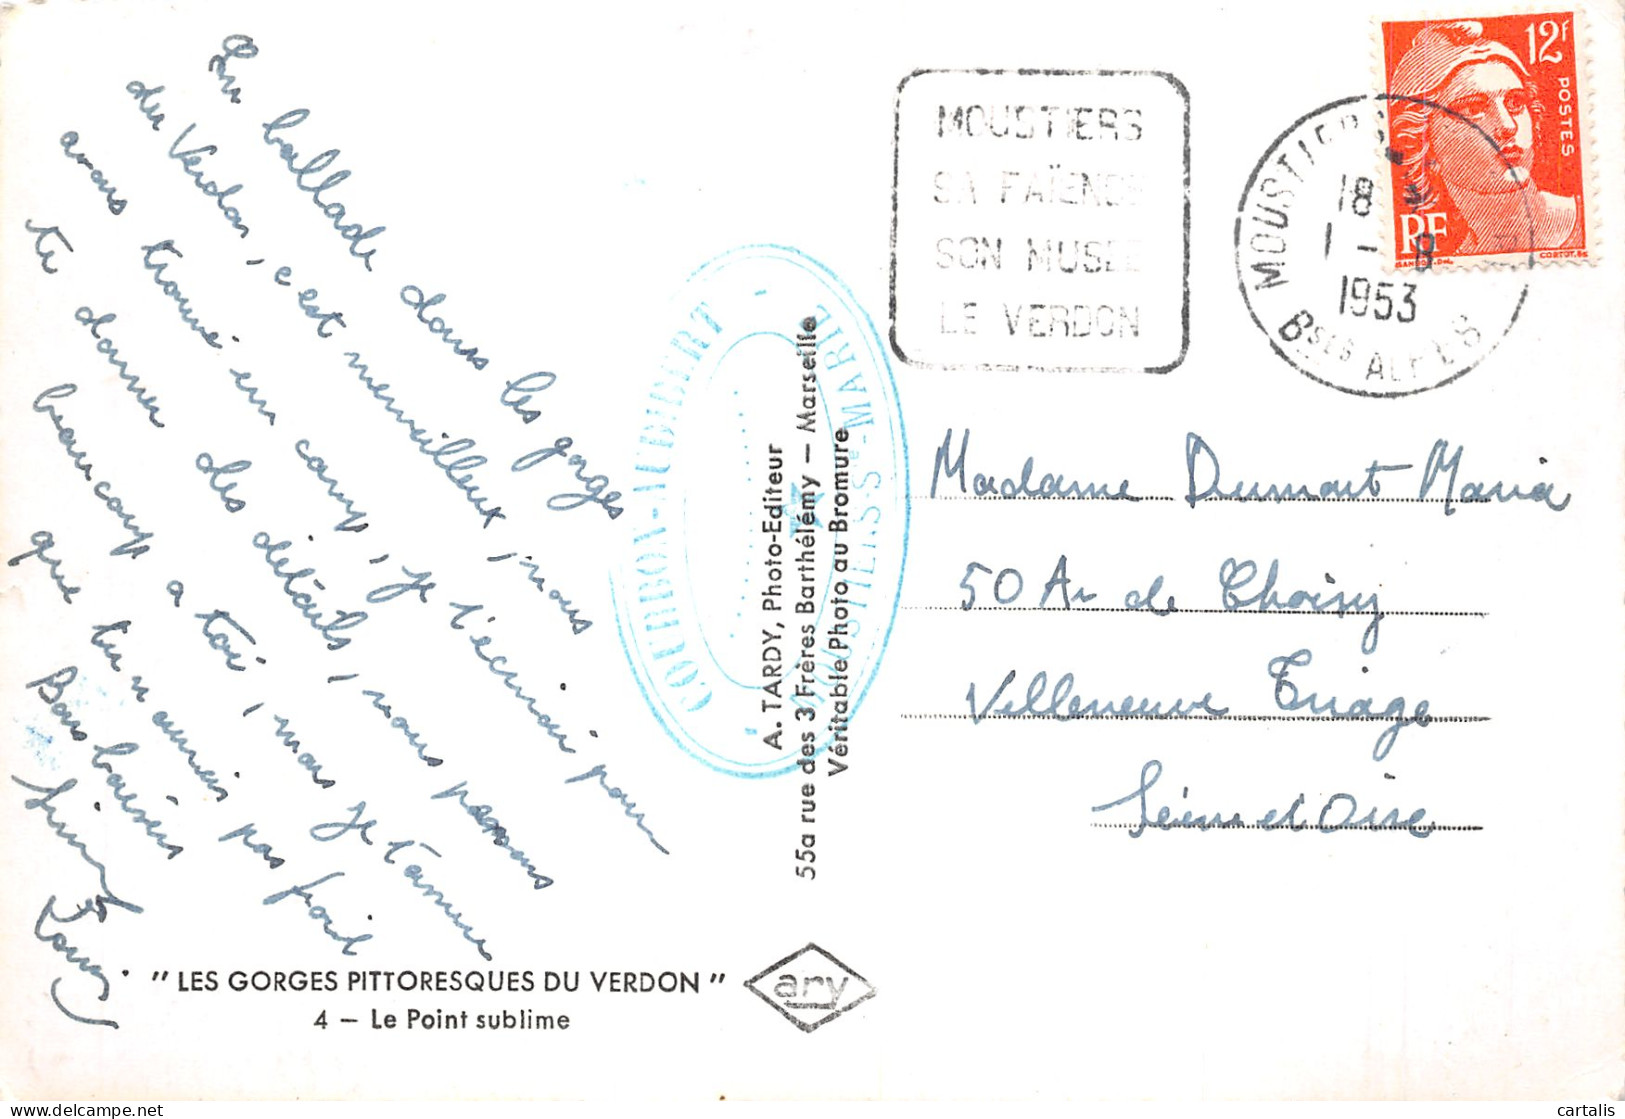 En ballade dans les gorges
du Verdon, c'est merveilleux, nous
avons trouvé un camp, je t'écrirai pour
te donner des détails, nous pensons
beaucoup a toi, mais je t'assure
que tu n'aurais pas froid
Bons baisers
"LES GORGES PITTORESQUES DU VERDON"
4 — Le Point sublime
A. TARDY, Photo-Editeur
55a rue des 3 Frères Barthélémy — Marseille
Véritable Photo au Bromure
ary
COURBON-AUDIBERT
MOUSTIERS-Ste-MARIE
MOUSTIERS
SA FAÏENCE
SON MUSEE
LE VERDON
MOUSTIERS
18
1 - 8
1953
Bses ALPES
12F
POSTES
RF
GANDON.DEL.
CORTOT.SC
Madame Dumont Maria
50 Av de Choisy
Villeneuve Triage
Seine et Oise
cartalis
delcampe.net